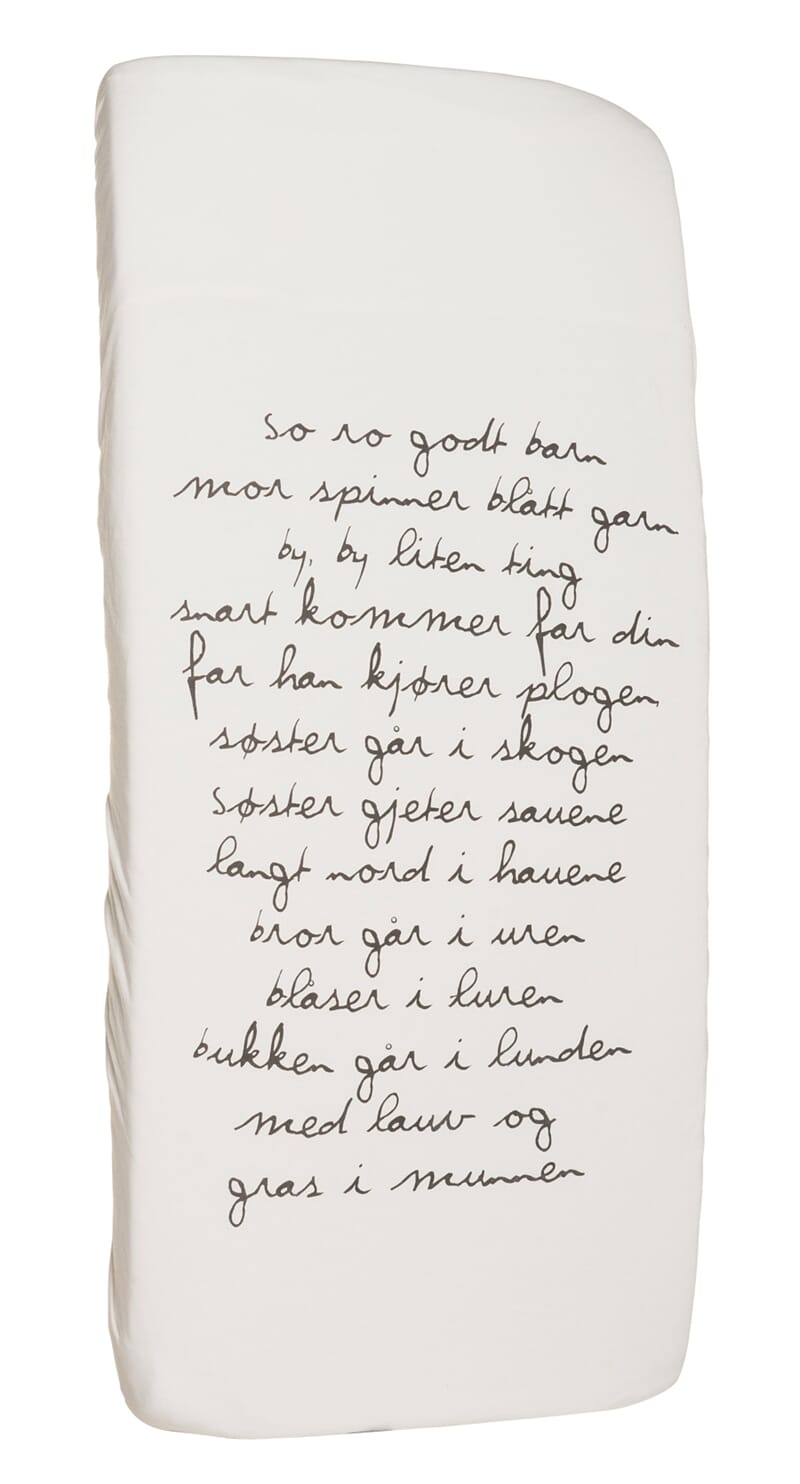 So ro godt barn
mor spinner blått garn
by, by liten ting
snart kommer far din
far han kjører plogen
søster går i skogen
Søster gjeter sauene
langt nord i hauene
bror går i uren
blåser i luren
bukken går i lunden
med lauv og
gras i munnen